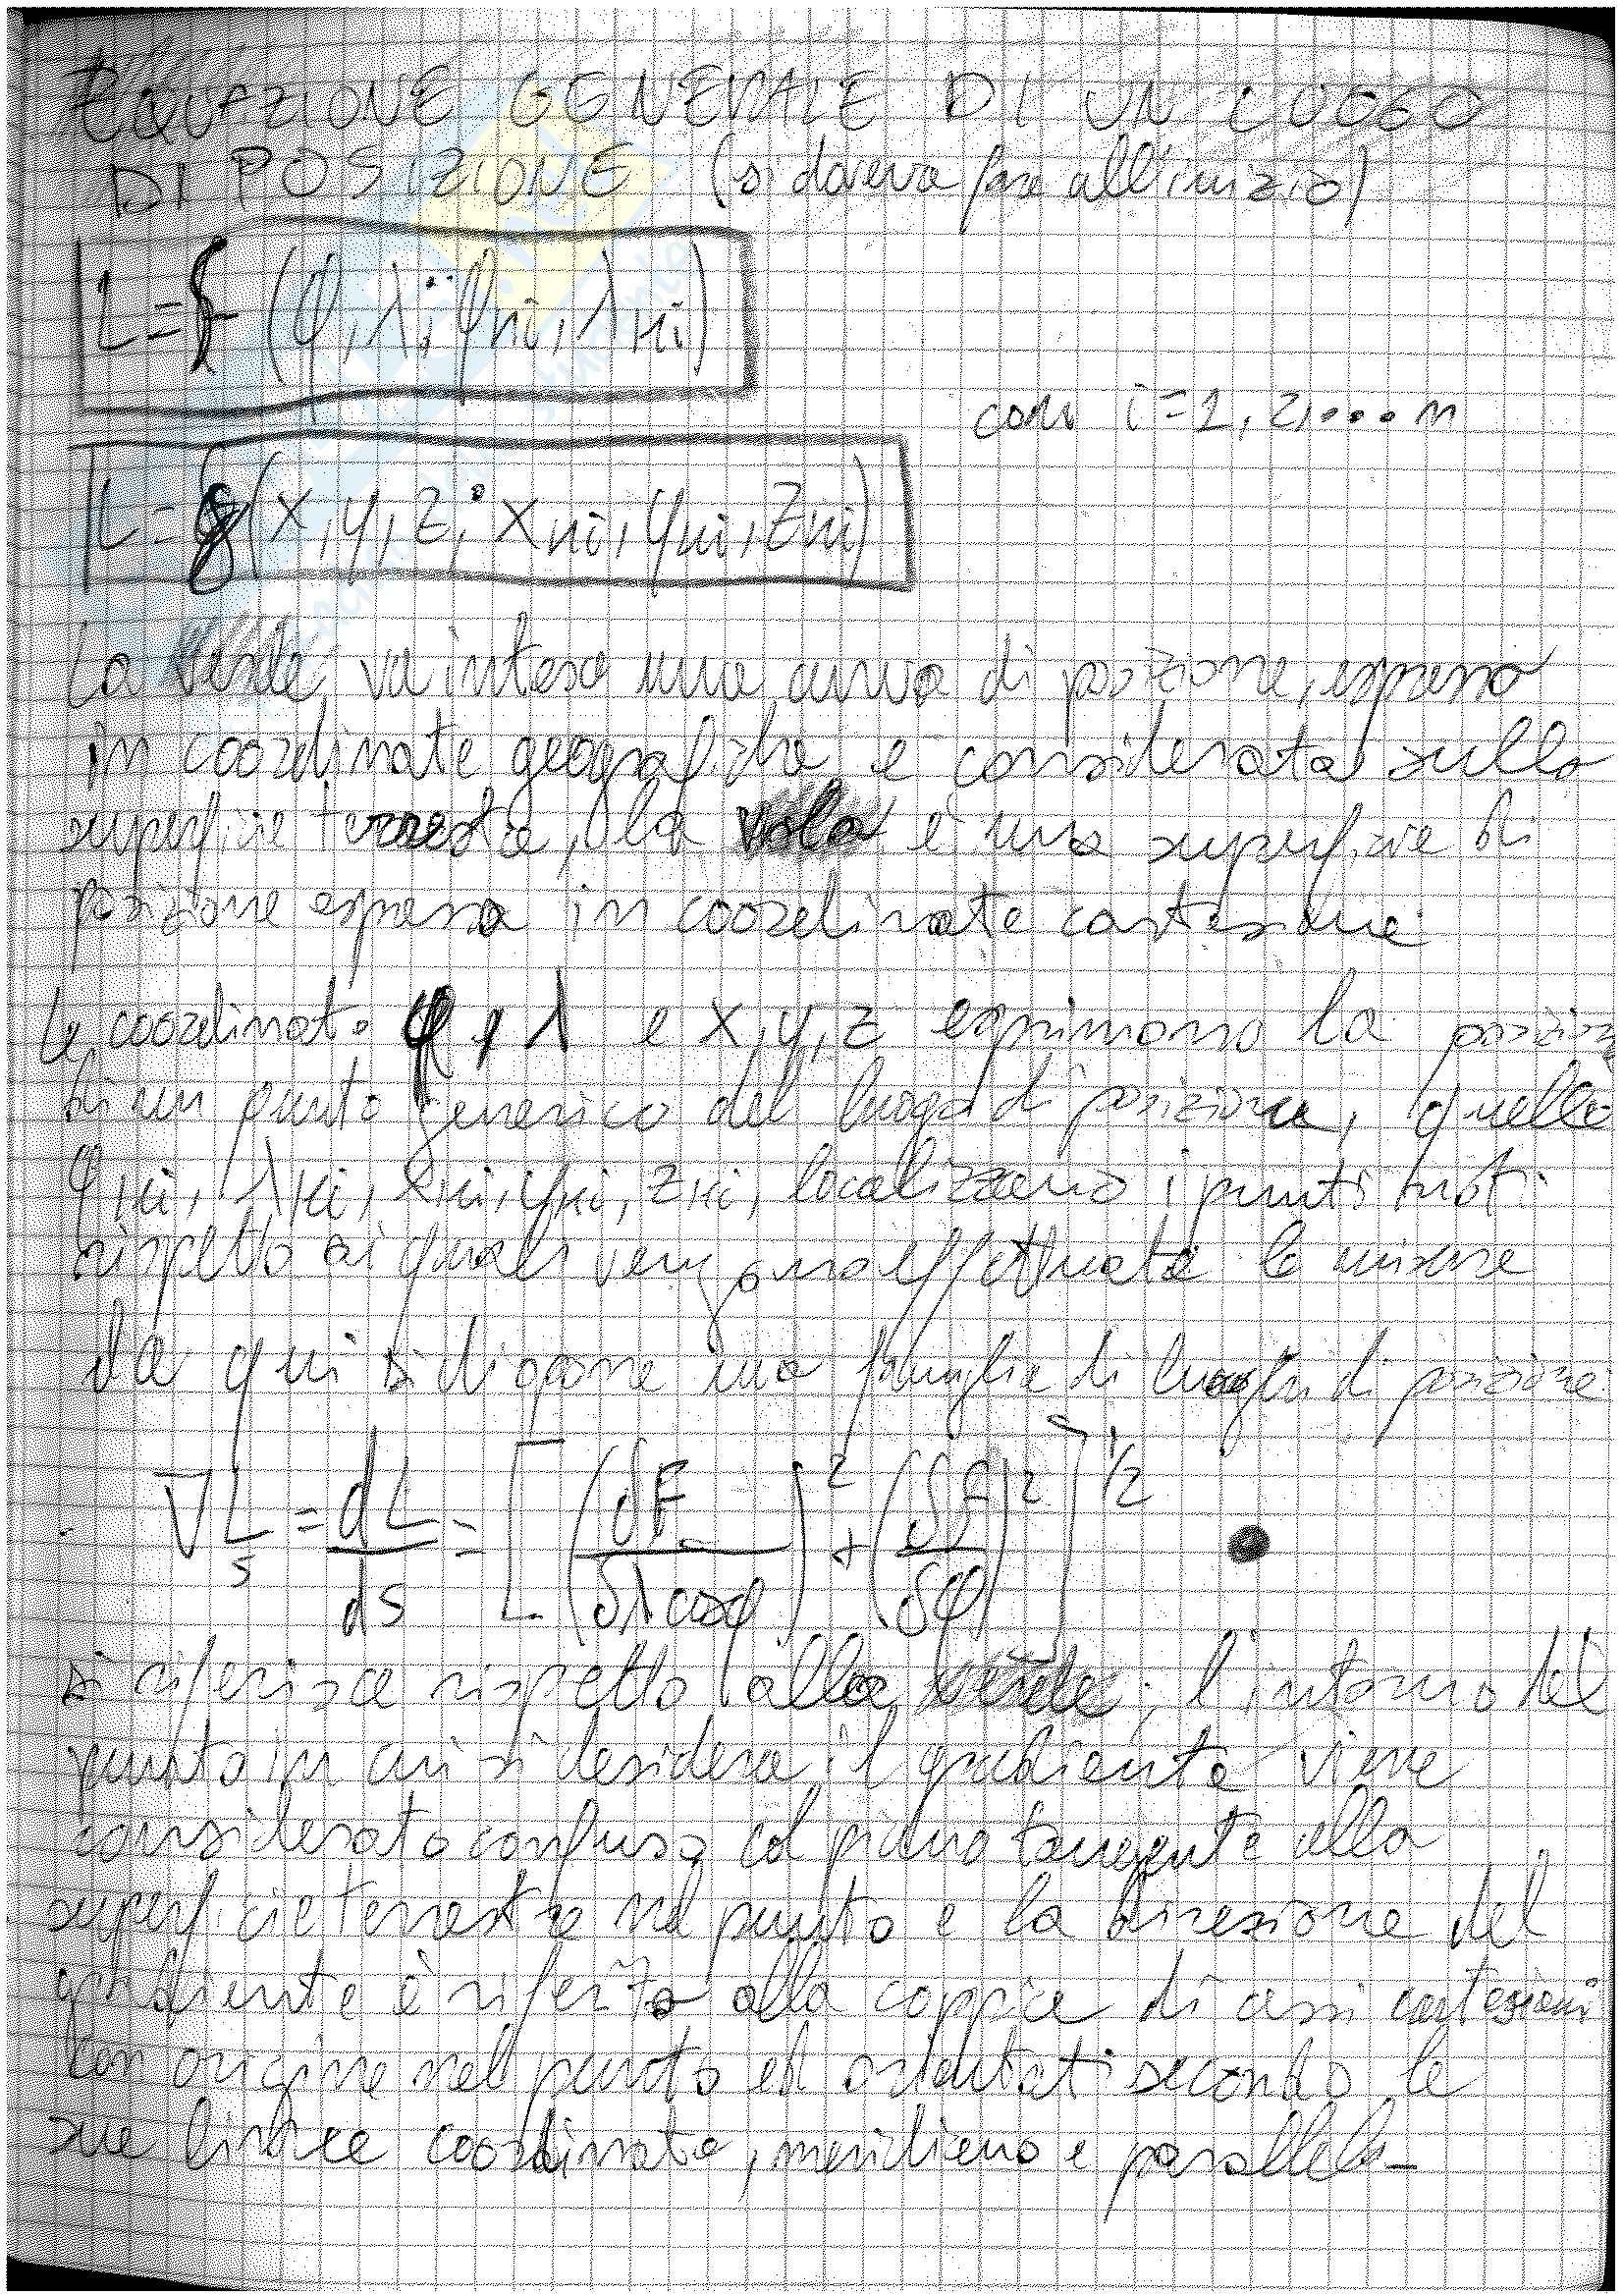 EQUAZIONE GENERALE DI UN LUOGO
DI POSIZIONE (si doveva fare all'inizio)
L = f (φ, λ; φni, λni)
con i = 1, 2, ... n
L = g (x, y, z; xni, yni, zni)
La verde va intesa una curva di posizione, espressa
in coordinate geografiche e considerata sulla
superficie terrestre, la viola è una superficie di
posizione espressa in coordinate cartesiane.
Le coordinate φ, λ e x, y, z esprimono la posizione
di un punto generico del luogo di posizione, quelle
φni, λni, xni, yni, zni, localizzano i punti noti
rispetto ai quali vengono effettuate le misure
da qui si dispone una famiglia di luoghi di posizione
∇L_s = dL/ds = [(δF/δλcosφ)² + (δF/δφ)²]^1/2
si riferisce rispetto alla verde; l'intorno del
punto in cui si desidera il gradiente viene
considerato confuso col piano tangente alla
superficie terrestre nel punto e la direzione del
gradiente è riferita alla coppia di assi cartesiani
con origine nel punto ed orientati secondo le
sue linee coordinate, meridiano e parallelo